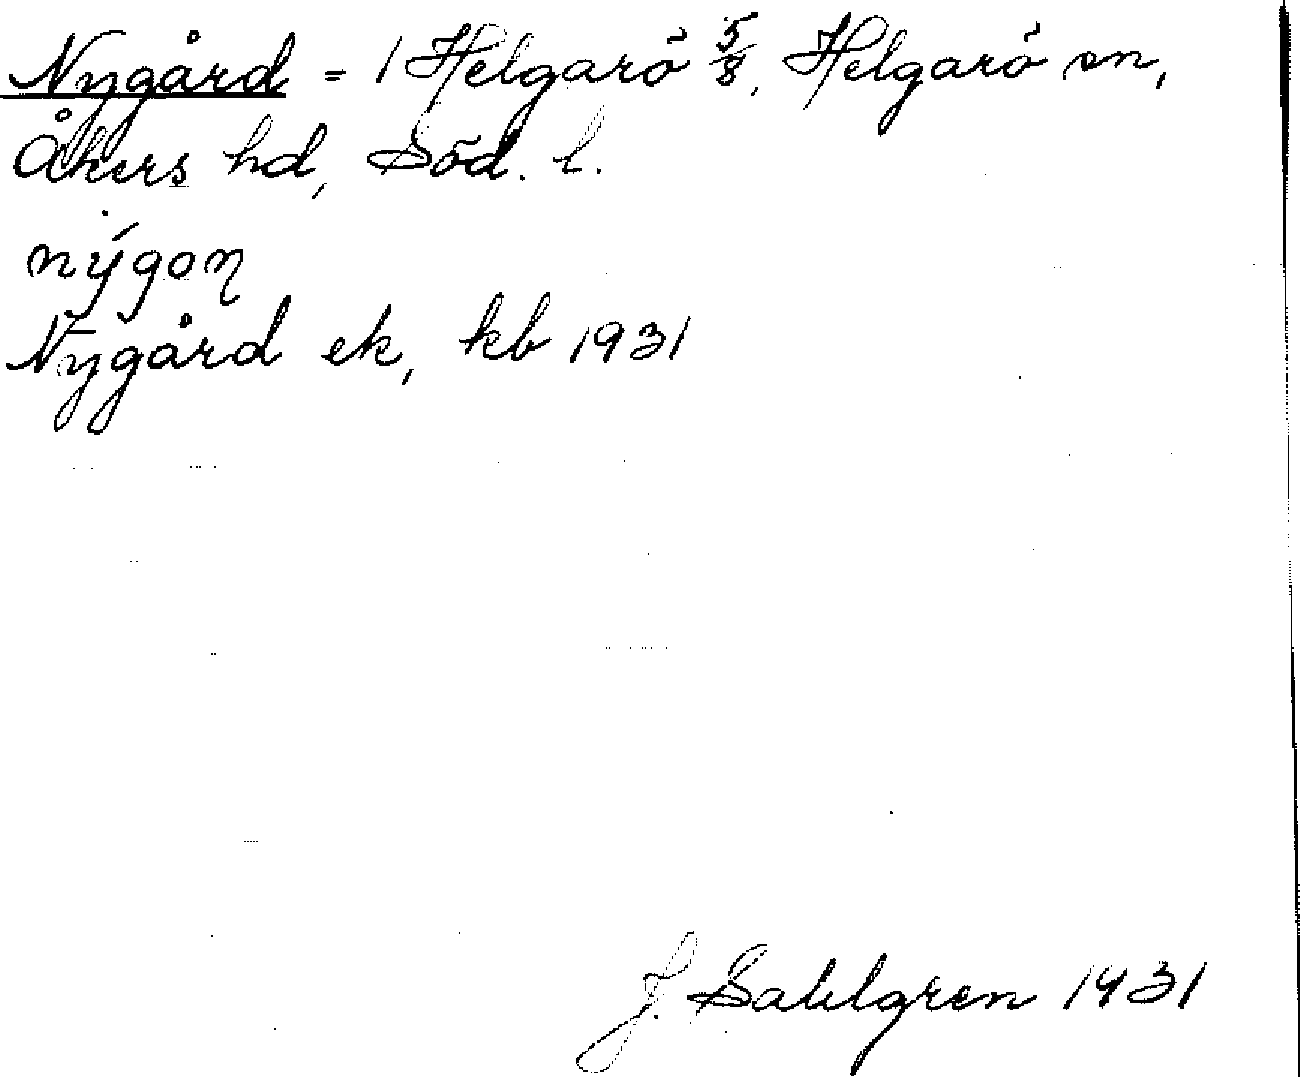 Nygård = 1 Helgarö 5/8, Helgarö sn,
Åkers hd, Söd. l.
Nygård ek, kb 1931
J. Sahlgren 1931